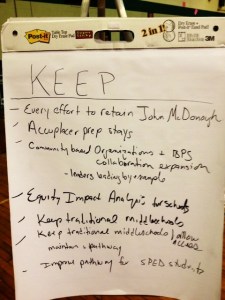 Post-it
2 in 1!
3M
KEEP
- Every effort to retain John McDonough
- Accuplacer prep stays
- Community based Organizations + BPS
collaboration expansion
- leaders leading by example
- Equity Impact Analysis for schools
- Keep traditional middle schools
- Keep traditional middle schools / allow access
maintain a pathway
- Improve pathway for SPED students